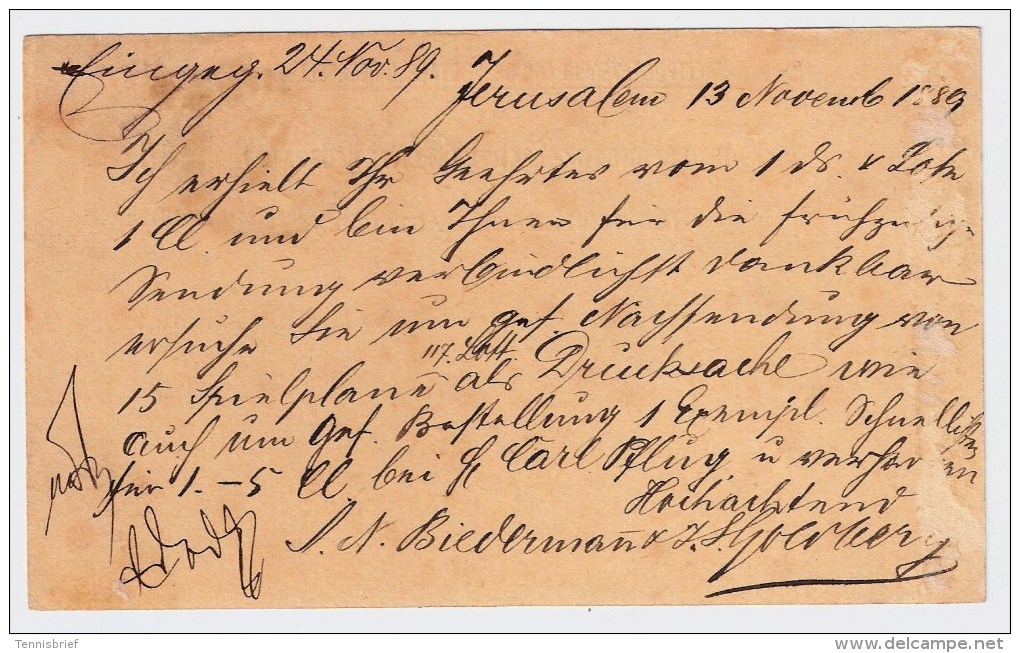 Eingeg. 24. Nov. 89.
Jerusalem 13 Novemb 1889
Ich erhielt Ihr Geehrtes vom 1 ds. & Lose
1 Cl und bin Ihnen für die frühzeitige
Sendung verbindlichst dankbar
ersuche Sie um gef. Nachsendung von
117. Lott.
15 Spielpläne als Drucksache wie
auch um gef. Bestellung 1 Exempl. Schnelllisten
für 1. - 5 Cl bei H Carl Pflug u verharren
Hochachtend
J. N. Biedermann & J. S. Goldberg
Tennisbrief
delcampe.net